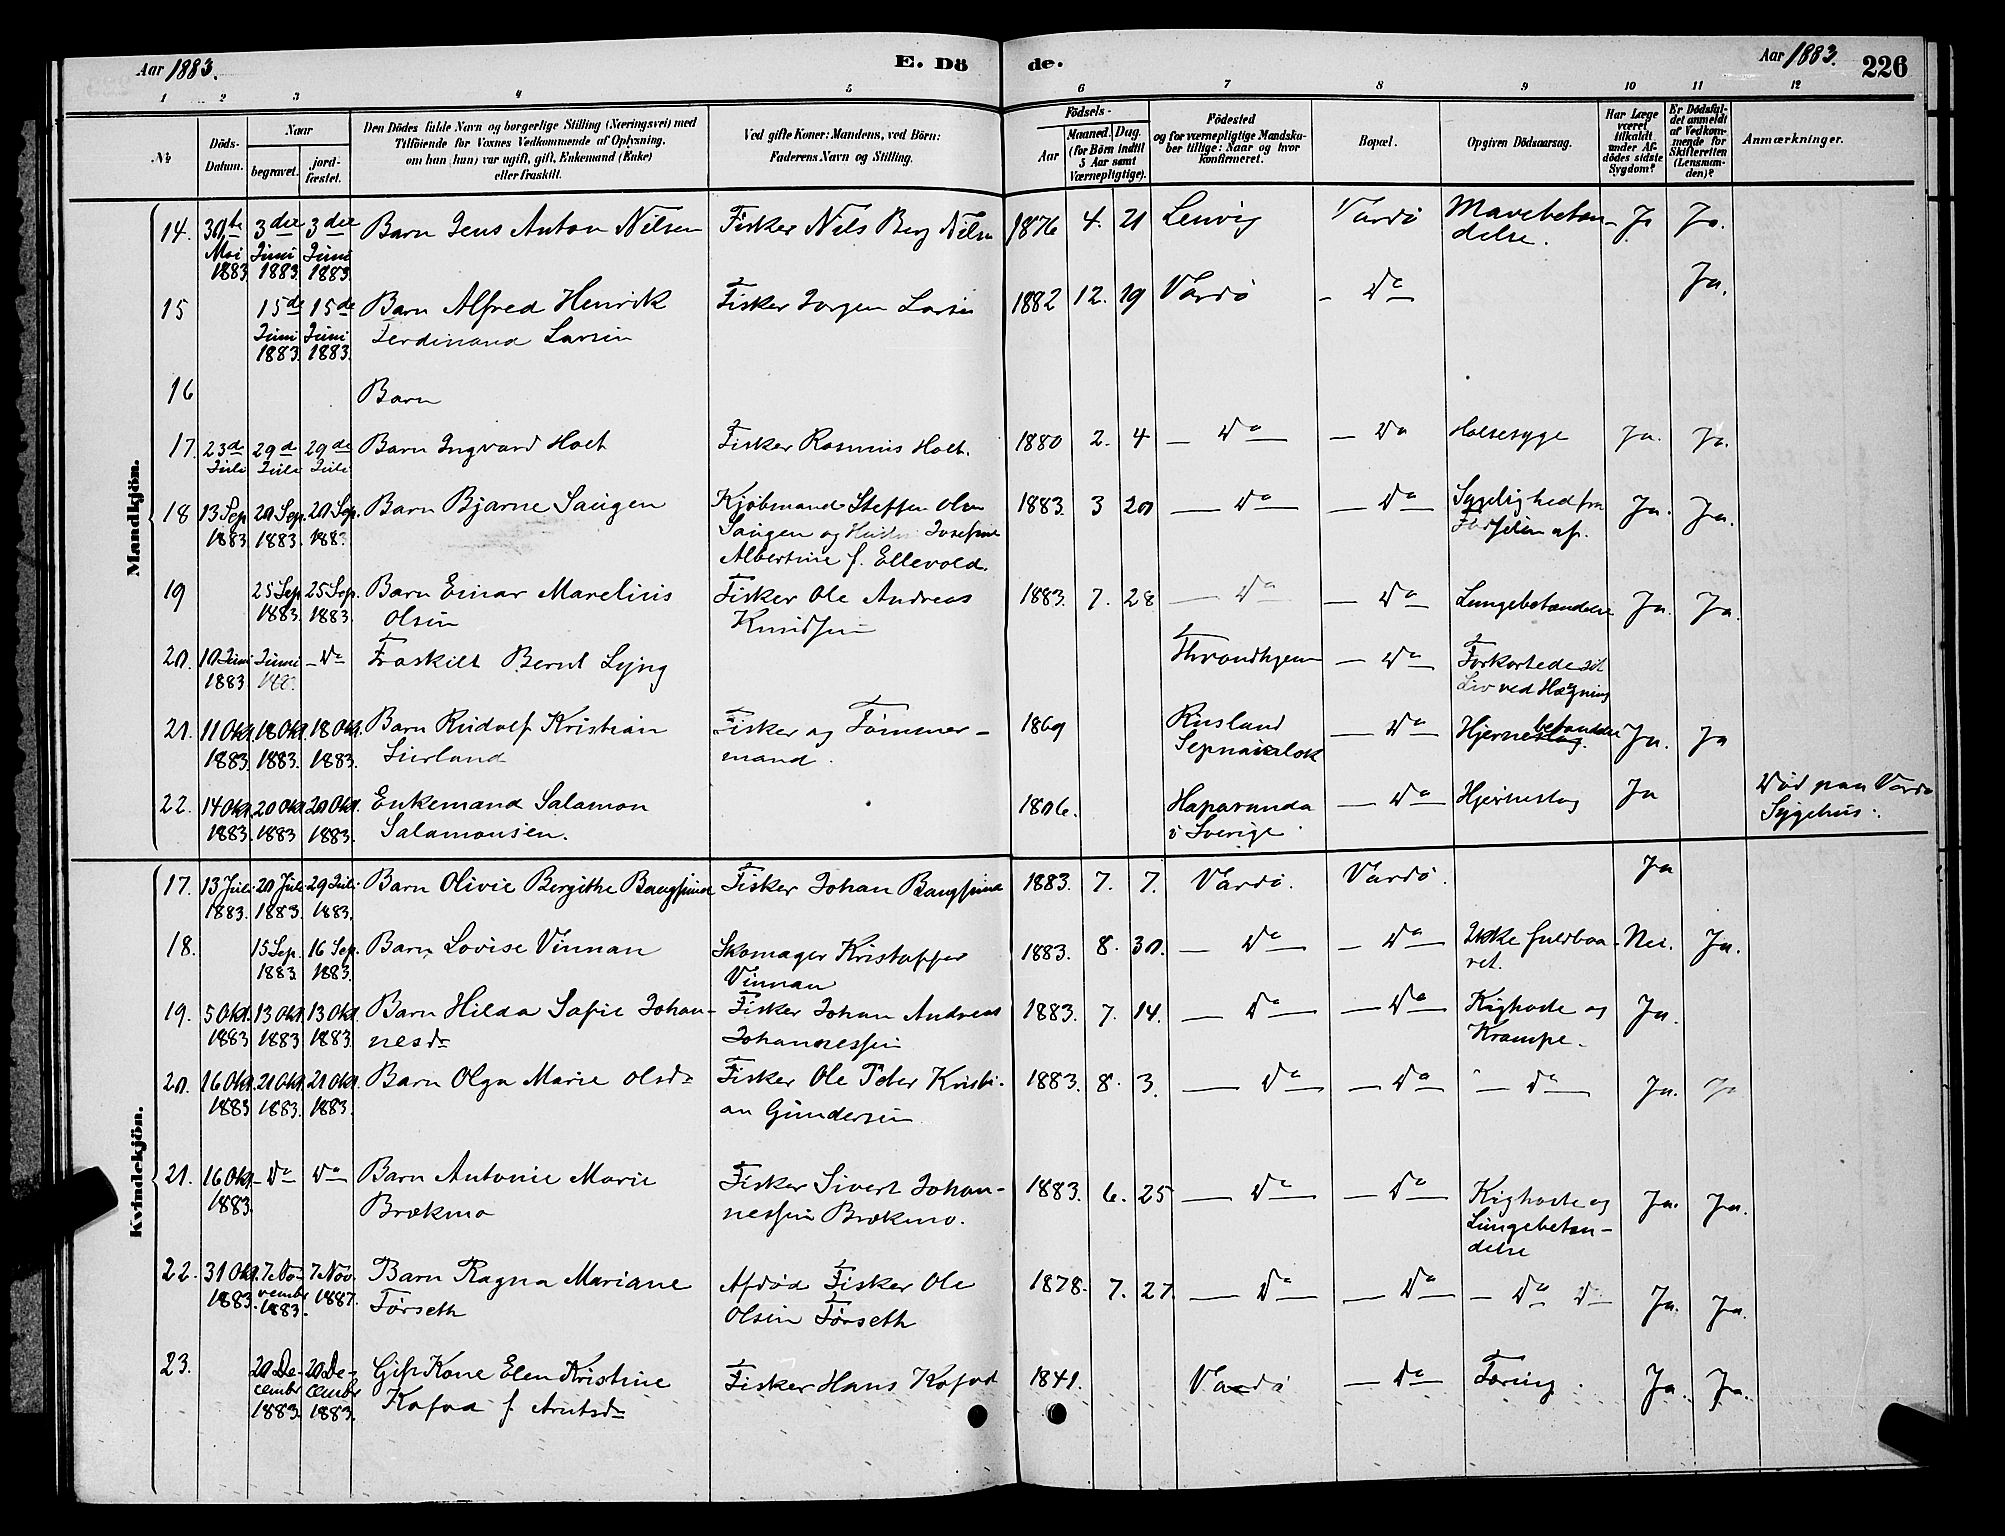 Aar 1883.
E. Dö
de.
Aar 1883.
226
1 2 3 4 5 6 7 8 9 10 11 12
№
Döds-
Datum.
Naar
begravet.
jord-
fæstet.
Den Dödes fulde Navn og borgerlige Stilling (Næringsvei) med
Tilföiende for Voxnes Vedkommende af Oplysning,
om han (hun) var ugift, gift, Enkemand (Enke)
eller fraskilt.
Ved gifte Koner: Mandens, ved Börn:
Faderens Navn og Stilling.
Födsels-
Aar
Maaned. Dag.
(for Börn indtil
5 Aar samt
Værnepligtige).
Födested
og for værnepligtige Mandska-
ber tillige: Naar og hvor
konfirmeret.
Bopæl.
Opgiven Dödsaarsag.
Har Læge
været
tilkaldt
under Af-
dödes sidste
Sygdom?
Er Dödsfal-
det anmeldt
af Vedkom-
mende for
Skifteretten
(Lensman-
den)?
Anmærkninger.
Mandkjön.
14. 30te Mai 1883 3die Juni 1883. 3die Juni 1883 Barn Jens Anton Nilsen Fisker Nils Berg Nilsen 1876 4. 21 Lenvig Vardö Mavebetæn-
delse. Ja Ja.
15 15de Juni 1883. 15de Juni 1883. Barn Alfred Henrik Fisker Jørgen Larsen 1882 12. 19 Vardö - Do Ja.
Ferdinand Larsen
16 Barn
17. 23de Juli 29de Juli 29de Juli Barn Ingvard Holt Fisker Rasmus Holt. 1880 2. 4 - Do - Do Halsesyge Ja. Ja.
18 13 Sep 1883 20 Sep. 1883. 20 Sep. 1883 Barn Bjarne Saugen Kjøbmand Steffen Olsen 1883. 3 20 - Do - Do Sygelighed fra Ja. Ja.
Saugen og Hustru Josefine Fødselen af.
Albertine f. Ellevold.
19 25 Sep 1883. 25 Sep. 1883. Barn Einar Marelius Fisker Ole Andreas 1883. 7. 28 - Do - Do Lungebetændelse Ja. Ja
Olsen Knudsen
20. 10 Juni 1883 Juni - Do Fraskilt Bernt Lyng Throndhjem - Do Forkortede sit
Liv ved Hægning
21. 11 Okt. 1883. 18 Okt. 1883. 18 Okt. 1883. Barn Rudolf Kristian Fisker og Tømmer- 1869 Rusland - Do Hjernebetændelse Ja. Ja
mand.
22. 14 Okt. 1883. 20 Okt. 1883 20 Okt. 1883. Enkemand Salamon 1806. Haparanda - Do Hjerneslag Ja Død paa Vardø
Salamonsen. i Sverige. Sygehus.
Kvindekjön.
17. 13 Juli 1883. 20 Juli 1883. 29 Juli 1883. Barn Olivie Bergithe Fisker Johan 1883. 7. 7. Vardö. Vardö. Ja
18. 15 Sep. 1883 16 Sep. 1883. Barn Lovise Vinnan Skomager Kristoffer 1883. 8. 30. - Do - Do Ikke fuldbaa- Nei. Ja.
Vinnan ret.
19. 5 Okt. 1883 13 Okt. 1883 13 Okt. 1883. Barn Hilda Sofie Johan- Fisker Johan Andreas 1883. 7. 14. - Do - Do Kighoste og Ja.
nesdr Johannessen Krampe.
20. 16 Okt. 1883 21 Okt. 1883. 21 Okt. 1883. Barn Olga Marie Olsdr Fisker Ole Peter Kristi- 1883. 8. 3. - Do - Do - Do Ja. Ja
an Gundersen
21. 16 Okt. 1883. - Do Do Barn Antonie Marie Fisker Sivert Johan- 1883. 6. 25 - Do - Do Kighoste og Ja. Ja.
Brækmo nessen Brækmo. Lungebetæn-
delse
22. 31 Okt. 1883. 7 November 1883. 7 Nov. 1887. Barn Ragna Mariane Afdød Fisker Ole 1878. 7. 27. - Do - Do - Do Do Ja. Ja.
Førseth Olsen Førseth
23. 20 December 1883. 20 December 1883. Gift Kone Elen Kristine Fisker Hans Kofod 1841. Vardö - Do Tæring. Ja. Ja.
Kofod f. Arntsdr